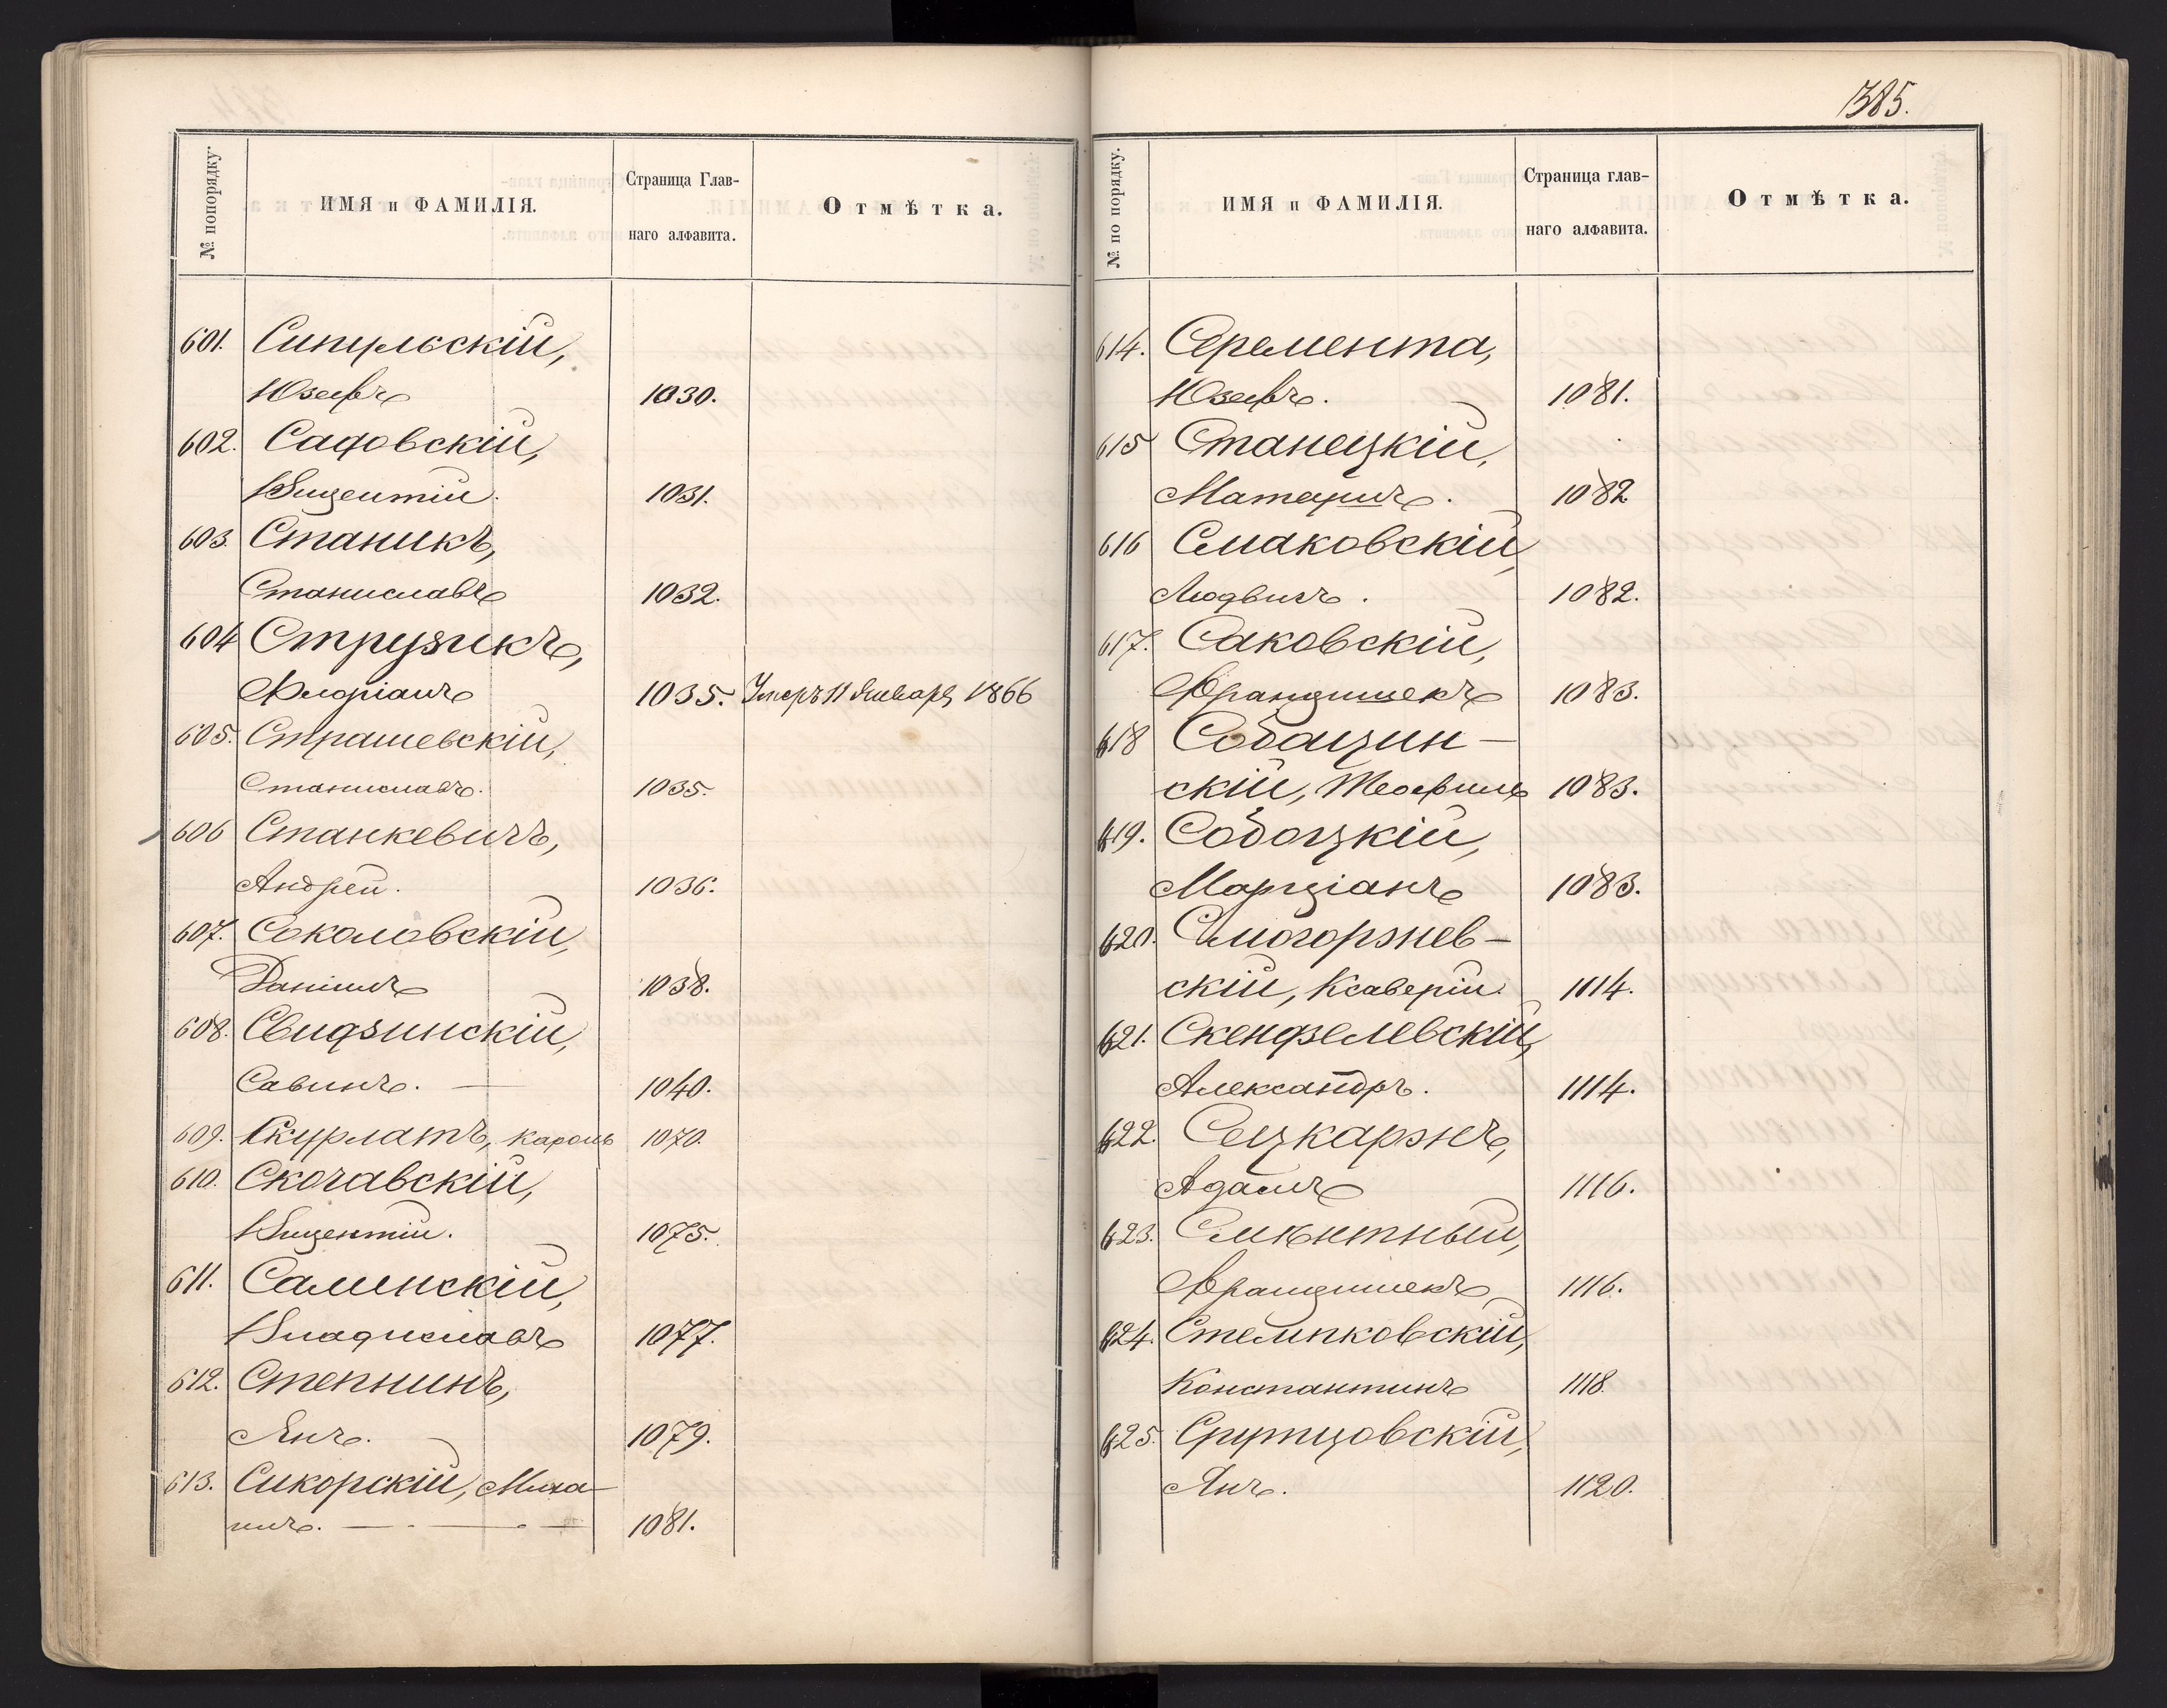 № попорядку.
ИМЯ и ФАМИЛІЯ.
Страница Глав-
наго алфавита.
Отмѣтка.
601. Сипульскій,
Юзефъ 1030.
602. Садовскій,
Вицентій. 1031.
603. Станикъ,
Станиславъ 1032.
604 Струзикъ,
Флоріанъ 1035. Умеръ 11 Января 1866
605. Страшевскій,
Станиславъ. 1035.
606 Станкевичъ,
Андрей. 1036.
607. Соколовскій,
Даніилъ 1038.
608. Свидзинскій,
Савинъ. — 1040.
609. Скурлатъ, Кароль 1070.
610. Скочавскій,
Вицентій. 1075.
611. Салинскій,
Владиславъ 1077.
612. Степнинъ,
Янъ. 1079.
613. Сикорскій, Миха-
илъ. — 1081.
385.
№ по порядку.
ИМЯ и ФАМИЛІЯ.
Страница глав-
наго алфавита.
Отмѣтка.
614. Серемента,
Юзефъ. 1081.
615 Станецкій,
Матеушъ. 1082
616 Смаковскій,
Людвигъ. 1082.
617. Саковскій,
Францишекъ 1083.
618 Собацин-
скій, Теофилъ 1083.
619. Собоцкій,
Марціанъ 1083.
620. Смогоржев-
скій, Ксаверій. 1114.
621. Скендзелевскій,
Александръ. 1114.
622. Сецкаржъ,
Адамъ 1116.
623.
Францишекъ 1116.
624. Стемпковскій,
Константинъ 1118.
625.
Янъ. 1120.